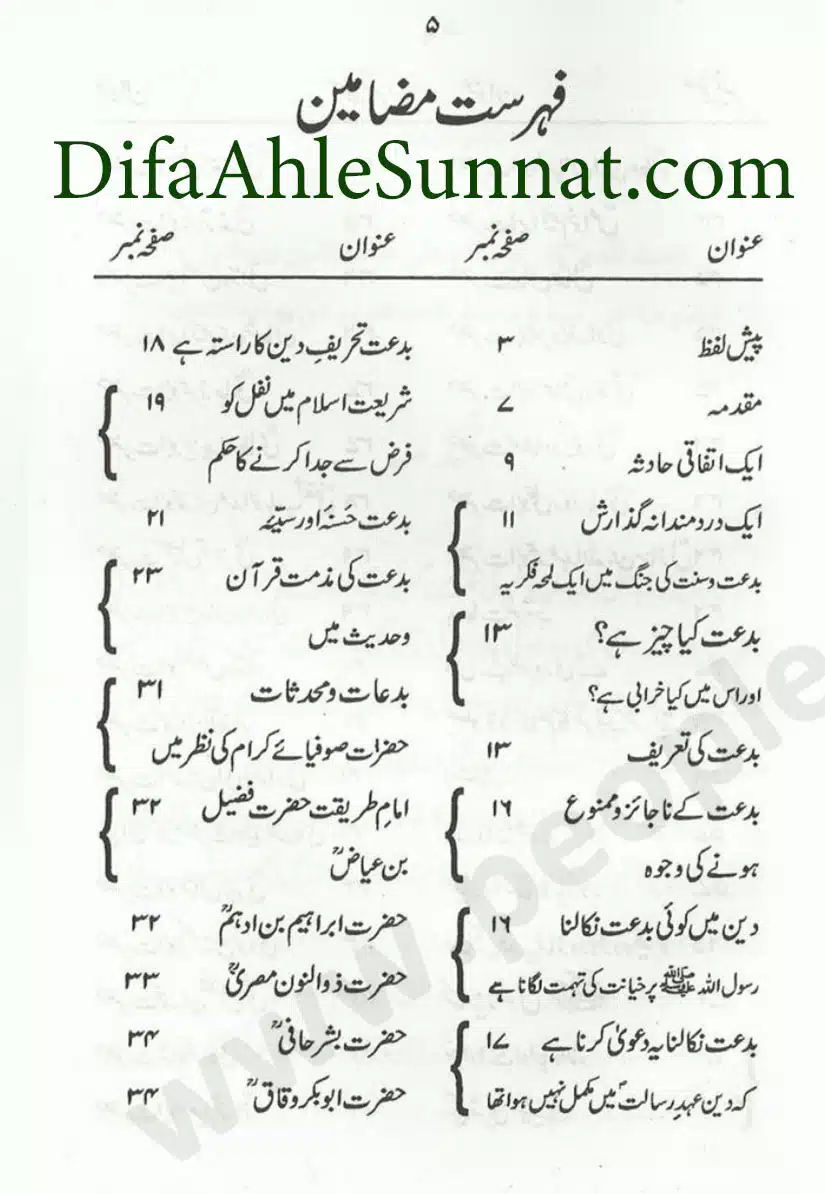 ۵
فہرست مضامین
DifaAhleSunnat.com
عنوان صفحہ نمبر
پیش لفظ ۳
مقدمہ ۷
ایک اتفاقی حادثہ ۹
ایک دردمندانہ گذارش ۱۱
بدعت و سنت کی جنگ میں ایک لمحہ فکریہ
بدعت کیا چیز ہے؟ ۱۳
اور اس میں کیا خرابی ہے؟
بدعت کی تعریف ۱۳
بدعت کے ناجائز و ممنوع ۱۶
ہونے کی وجوہ
دین میں کوئی بدعت نکالنا ۱۶
رسول اللہ ﷺ پر خیانت کی تہمت لگانا ہے
بدعت نکالنا یہ دعویٰ کرنا ہے ۱۷
کہ دین عہدِ رسالتؐ میں مکمل نہیں ہوا تھا
عنوان صفحہ نمبر
بدعت تحریفِ دین کا راستہ ہے ۱۸
شریعت اسلام میں نفل کو ۱۹
فرض سے جدا کرنے کا حکم
بدعت حَسنَہ اور سیّئہ ۲۱
بدعت کی مذمت قرآن ۲۳
و حدیث میں
بدعات و محدثات ۳۱
حضرات صوفیائے کرام کی نظر میں
امامِ طریقت حضرت فضیل ۳۲
بن عیاضؒ
حضرت ابراہیم بن ادہمؒ ۳۲
حضرت ذوالنون مصریؒ ۳۳
حضرت بشر حافیؒ ۳۴
حضرت ابوبکر وقاقؒ ۳۴
www.people